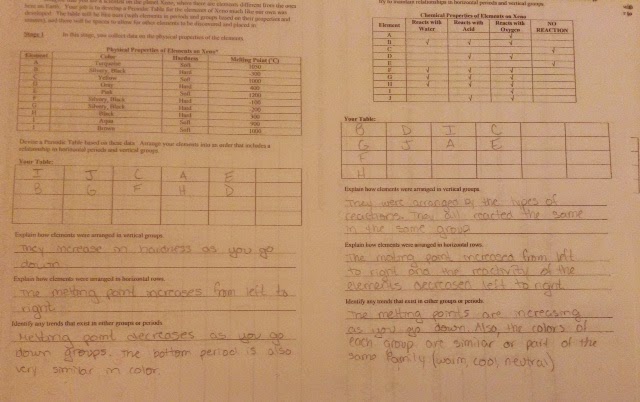 on the planet Xeno, where there are elements different from the ones
here on Earth. Your job is to develop a Periodic Table for the elements of Xeno much like our own was
developed. The table will be like ours (with elements in periods and groups based on their properties and
Stage 1 In this stage, you collect data on the physical properties of the elements.
Physical Properties of Elements on Xeno*
Element Color Hardness Melting Point (°C)
A Turquoise Soft
B Silvery, Black Hard -300
C Yellow Soft 1000
D Gray Hard 400
E Pink Soft 1200
F Silvery, Black Hard -100
G Silvery, Black Hard -200
H Black Hard 300
Aqua Soft 900
J Brown Soft 1000
Devise a Periodic Table based on these data. Arrange your elements into an order that includes a
relationship in horizontal periods and vertical groups.
Your Table:
I J C A E
B G F H D
Explain how elements were arranged in vertical groups.
They increase in hardness as you go
down.
Explain how elements were arranged in horizontal rows.
The melting point increases from left to
right
Identify any trends that exist in either groups or periods
Melting point decreases as you go
down groups. The bottom period is also
very similar in color.
try to reinterpret relationships in horizontal periods and vertical groups.
Chemical Properties of Elements on Xeno
Element Reacts with Water Reacts with Acid Reacts with Oxygen NO REACTION
A √
B √ √ √
C √
D √ √
E √
F √ √ √
G √ √ √
H √ √ √
I √
J √ √
Your Table:
B D I C
G J A E
F
H
Explain how elements were arranged in vertical groups.
They were arranged by the types of
reactions. They all reacted the same
in the same group
Explain how elements were arranged in horizontal rows.
The melting point increased from left
to right and the reactivity of the
elements decreased left to right
Identify any trends that exist in either groups or periods.
The melting points are increasing
as you go down. Also, the colors of
each group are similar or part of the
same family (warm, cool, neutral)